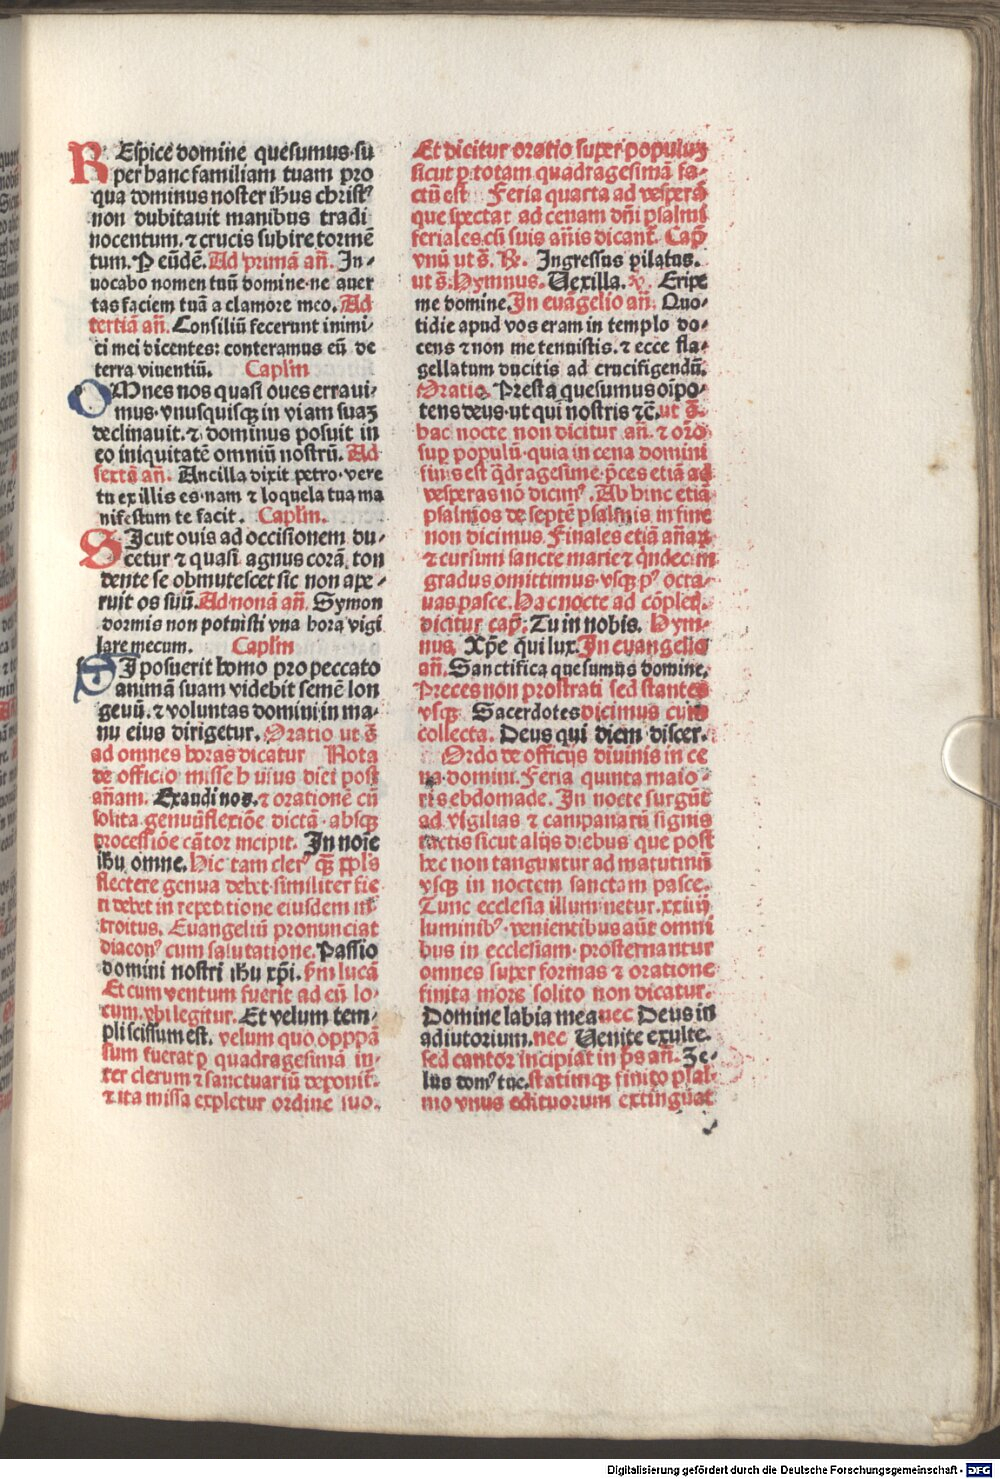 REspice domine quesumus·su
per hanc familiam tuam pro
qua dominus noster ihus christ⁹
non dubitauit manibus tradi
nocentum.⁊ crucis subire tormē
tum. P eūdē. Ad primā añ. In⸗
uocabo nomen tuū domine·ne auer
tas faciem tuā a clamore meo. Ad
tertiā añ. Consiliū fecerunt inimi⸗
ci mei dicentes: conteramus eū de
terra viuentiū. Caplm
OMnes nos quasi oues erraui⸗
mus·vnusquisqꝫ in viam suaꝫ
declinauit.⁊ dominus posuit in
eo iniquitatē omniū nostrū. Ad
sextā añ. Ancilla dixit petro·vere
tu ex illis es·nam ⁊ loquela tua ma
nifestum te facit. Caplm.
SIcut ouis ad occisionem du⸗
cetur ⁊ quasi agnus corā ton
dente se obmutescet sic non ape⸗
ruit os suū. Ad nonā añ. Symon
dormis non potuisti vna hora vigi
lare mecum. Caplm
SI posuerit homo pro peccato
animā suam videbit semē lon
geuū.⁊ voluntas domini in ma⸗
nu eius dirigetur. Oratio ut s̄
ad omnes horas dicatur Nota
de officio misse huius diei post
añam. Exaudi nos.⁊ orationē cū
solita genuūflexiōe dictā·absqꝫ
processiōe cātor incipit. In noīe
ihu omne. Hic tam cler⁹ qꝫ ppl's
flectere genua debet·similiter fie⸗
ri debet in repetitione eiusdem in
troitus. Euangeliū pronunciat
diacon⁹ cum salutatione. Passio
domini nostri ihu xp̄i. scdm lucā
Et cum ventum fuerit ad eū lo⸗
cum.vbi legitur. Et velum tem⸗
pli scissum est. velum quo opppā
sum fuerat ꝑ quadragesimā in⸗
ter clerum ⁊ sanctuariū deponit̄.
⁊ ita missa expletur ordine suo.
Et dicitur oratio super populuꝫ
sicut ꝑ totam quadragesimā fa⸗
ctū est Feria quarta ad vesperā
que spectat ad cenam dn̄i psalmi
feriales.cū suis añis dicant̄. Cap̄
vnū ut s̄. R̄. Ingressus pilatus.
ut s̄. Hymnus. Vexilla. v̄. Eripe
me domine. In euāgelio añ. Quo⸗
tidie apud vos eram in templo do⸗
cens ⁊ non me tenuistis.⁊ ecce fla⸗
gellatum ducitis ad crucifigendū.
Oratio. Presta quesumus oīpo⸗
tens deus·ut qui nostris ⁊c̄. ut s̄.
hac nocte non dicitur añ.⁊ orō
sup populū·quia in cena domini
finis est q̄dragesime·p̄ces etiā ad
vesperas nō dicim⁹. Ab hinc etiā
psalmos de septē psalmis in fine
non dicimus. Finales etiā añas
⁊ cursum sancte marie ⁊ q̄ndecim
gradus omittimus·vsqꝫ p⁹ octa⸗
uas pasce. Hac nocte ad cōpled.
dicitur cap̄. Tu in nobis. Hym⸗
nus. Xp̄e qui lux. In euangelio
añ. Sanctifica quesumus domine.
Preces non prostrati sed stantes
vsqꝫ Sacerdotes dicimus cum
collecta. Deus qui diem discer.
Ordo de officijs diuinis in ce
na domini. Feria quinta maio⸗
ris ebdomade. In nocte surgūt
ad vigilias ⁊ campanarū signis
tactis sicut alijs diebus que post
hec non tanguntur ad matutinū
vsqꝫ in noctem sanctam pasce.
Tunc ecclesia illuminetur.xxiiij
luminib⁹·venientibus aūt omni
bus in ecclesiam·prosternantur
omnes super formas ⁊ oratione
finita more solito non dicatur.
Domine labia mea nec Deus in
adiutorium.nec Venite exulte.
sed cantor incipiat in p̄s añ. Ze⸗
lus dom⁹ tue. statimqꝫ finito psal⸗
mo vnus edituorum extinguat
Digitalisierung gefördert durch die Deutsche Forschungsgemeinschaft - DFG